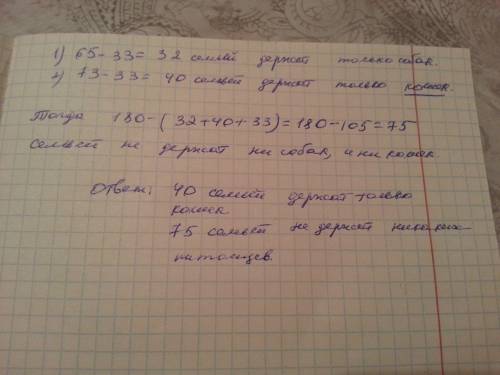 1) 65-33= 32 семьи держат только собак.
2) 73-33= 40 семьей держат только кошек.
Тогда 180-(32+40+33)=180-105=75
семьей не держат ни собак, и ни кошек.
Ответ: 40 семьей держат только
кошек
75 семьей не держат никаких
питомцев.